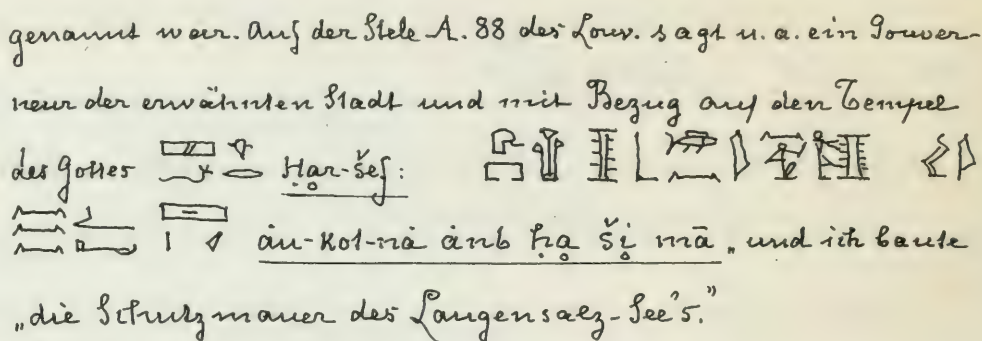 genannt war. Auf der Stele A. 88 des Louv. sagt u. a. ein Gouver-
neur der erwähnten Stadt und mit Bezug auf den Tempel
des Gottes Ḥar-šef:
ȧu-ḳot-nȧ ȧnb ḥa ši mā „und ich baute
„die Schutzmauer des Laugensalz-See's."